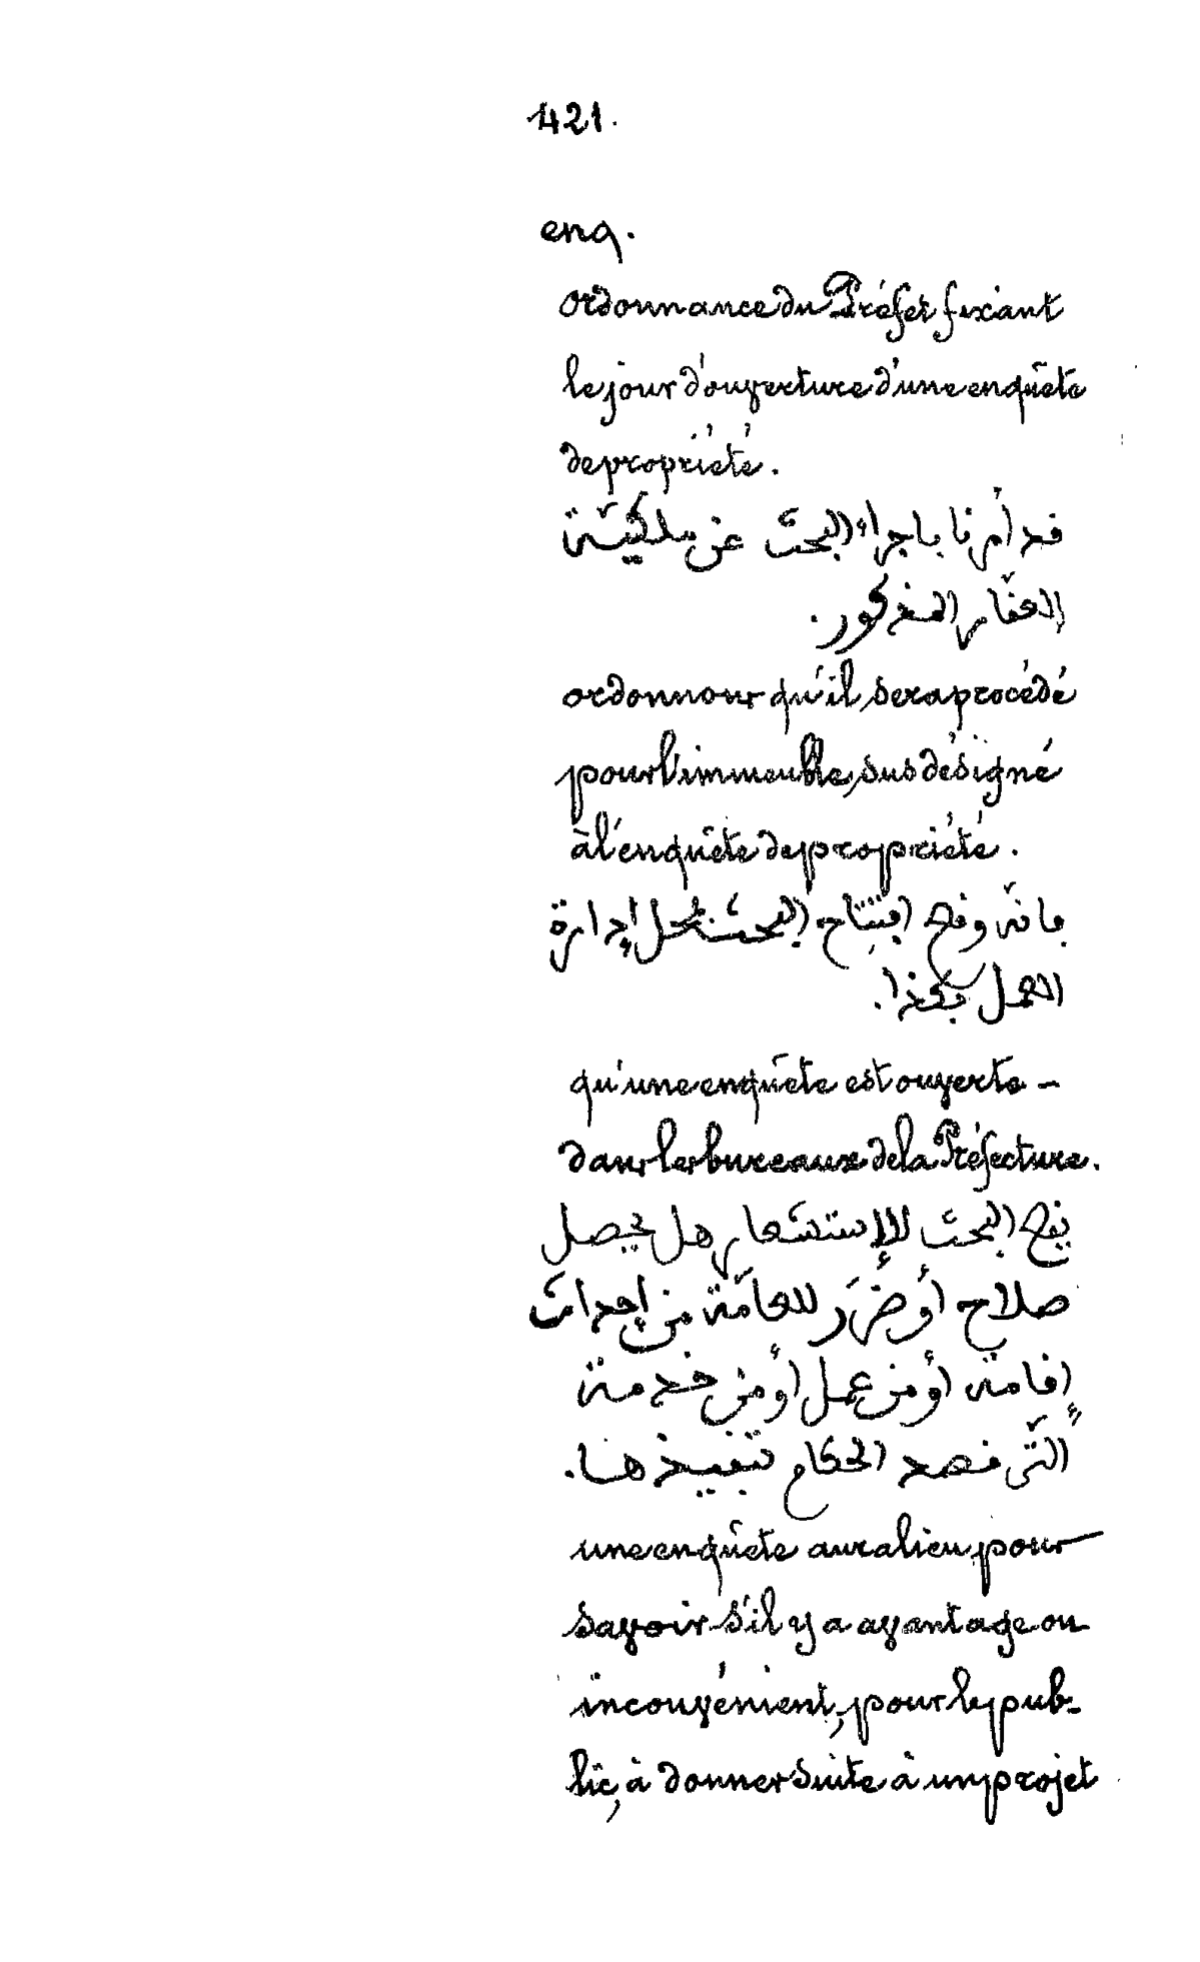 421.
enq.
ordonnance du Préfet fixant
le jour d'ouverture d'une enquête
de propriété.
قد أمرنا باجراء البحث عن ملكيّة
العقار المذكور.
ordonnons qu'il sera procédé
pour l'immeuble, sus désigné
à l'enquête de propriété.
بانّه وقع افتتاح البحث بمحل إدارة
العمل بكذا.
qu'une enquête est ouverte -
dans les bureaux de la Préfecture.
يقع البحث للإستشعار هل يحصل
صلاح أو ضرَر للعامّة من إحداث
إقامة أو من عمل أو من خدمة
الّتي قصد الحكام تنفيذها.
une enquête aura lieu pour
savoir s'il y a avantage ou
inconvénient, pour le pub-
lic, à donner suite à un projet